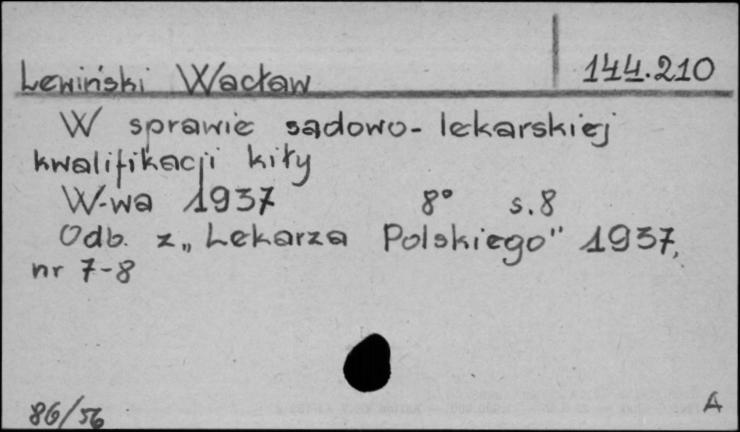 144.210
Lewiński Wacław
W sprawie sądowo-lekarskiej
kwalifikacji kiły
W-wa 1937 8° s.8
Odb. z „Lekarza Polskiego" 1937,
nr 7-8
86/56
A